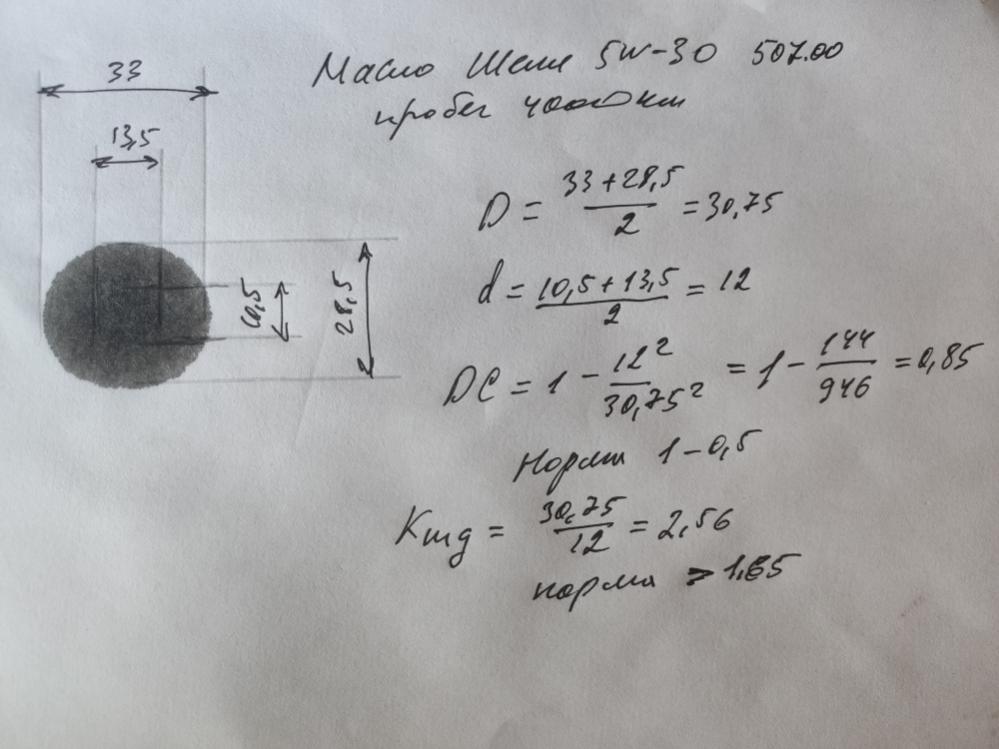 33
Масло Шелл 5W-30 507.00
пробег 4000 км
13,5
D = 33+28,5 / 2 = 30,75
d = 10,5+13,5 / 2 = 12
10,5
28,5
DC = 1 - 12² / 30,75² = 1 - 144 / 946 = 0,85
Норма 1-0,5
Кmg = 30,75 / 12 = 2,56
норма > 1,65